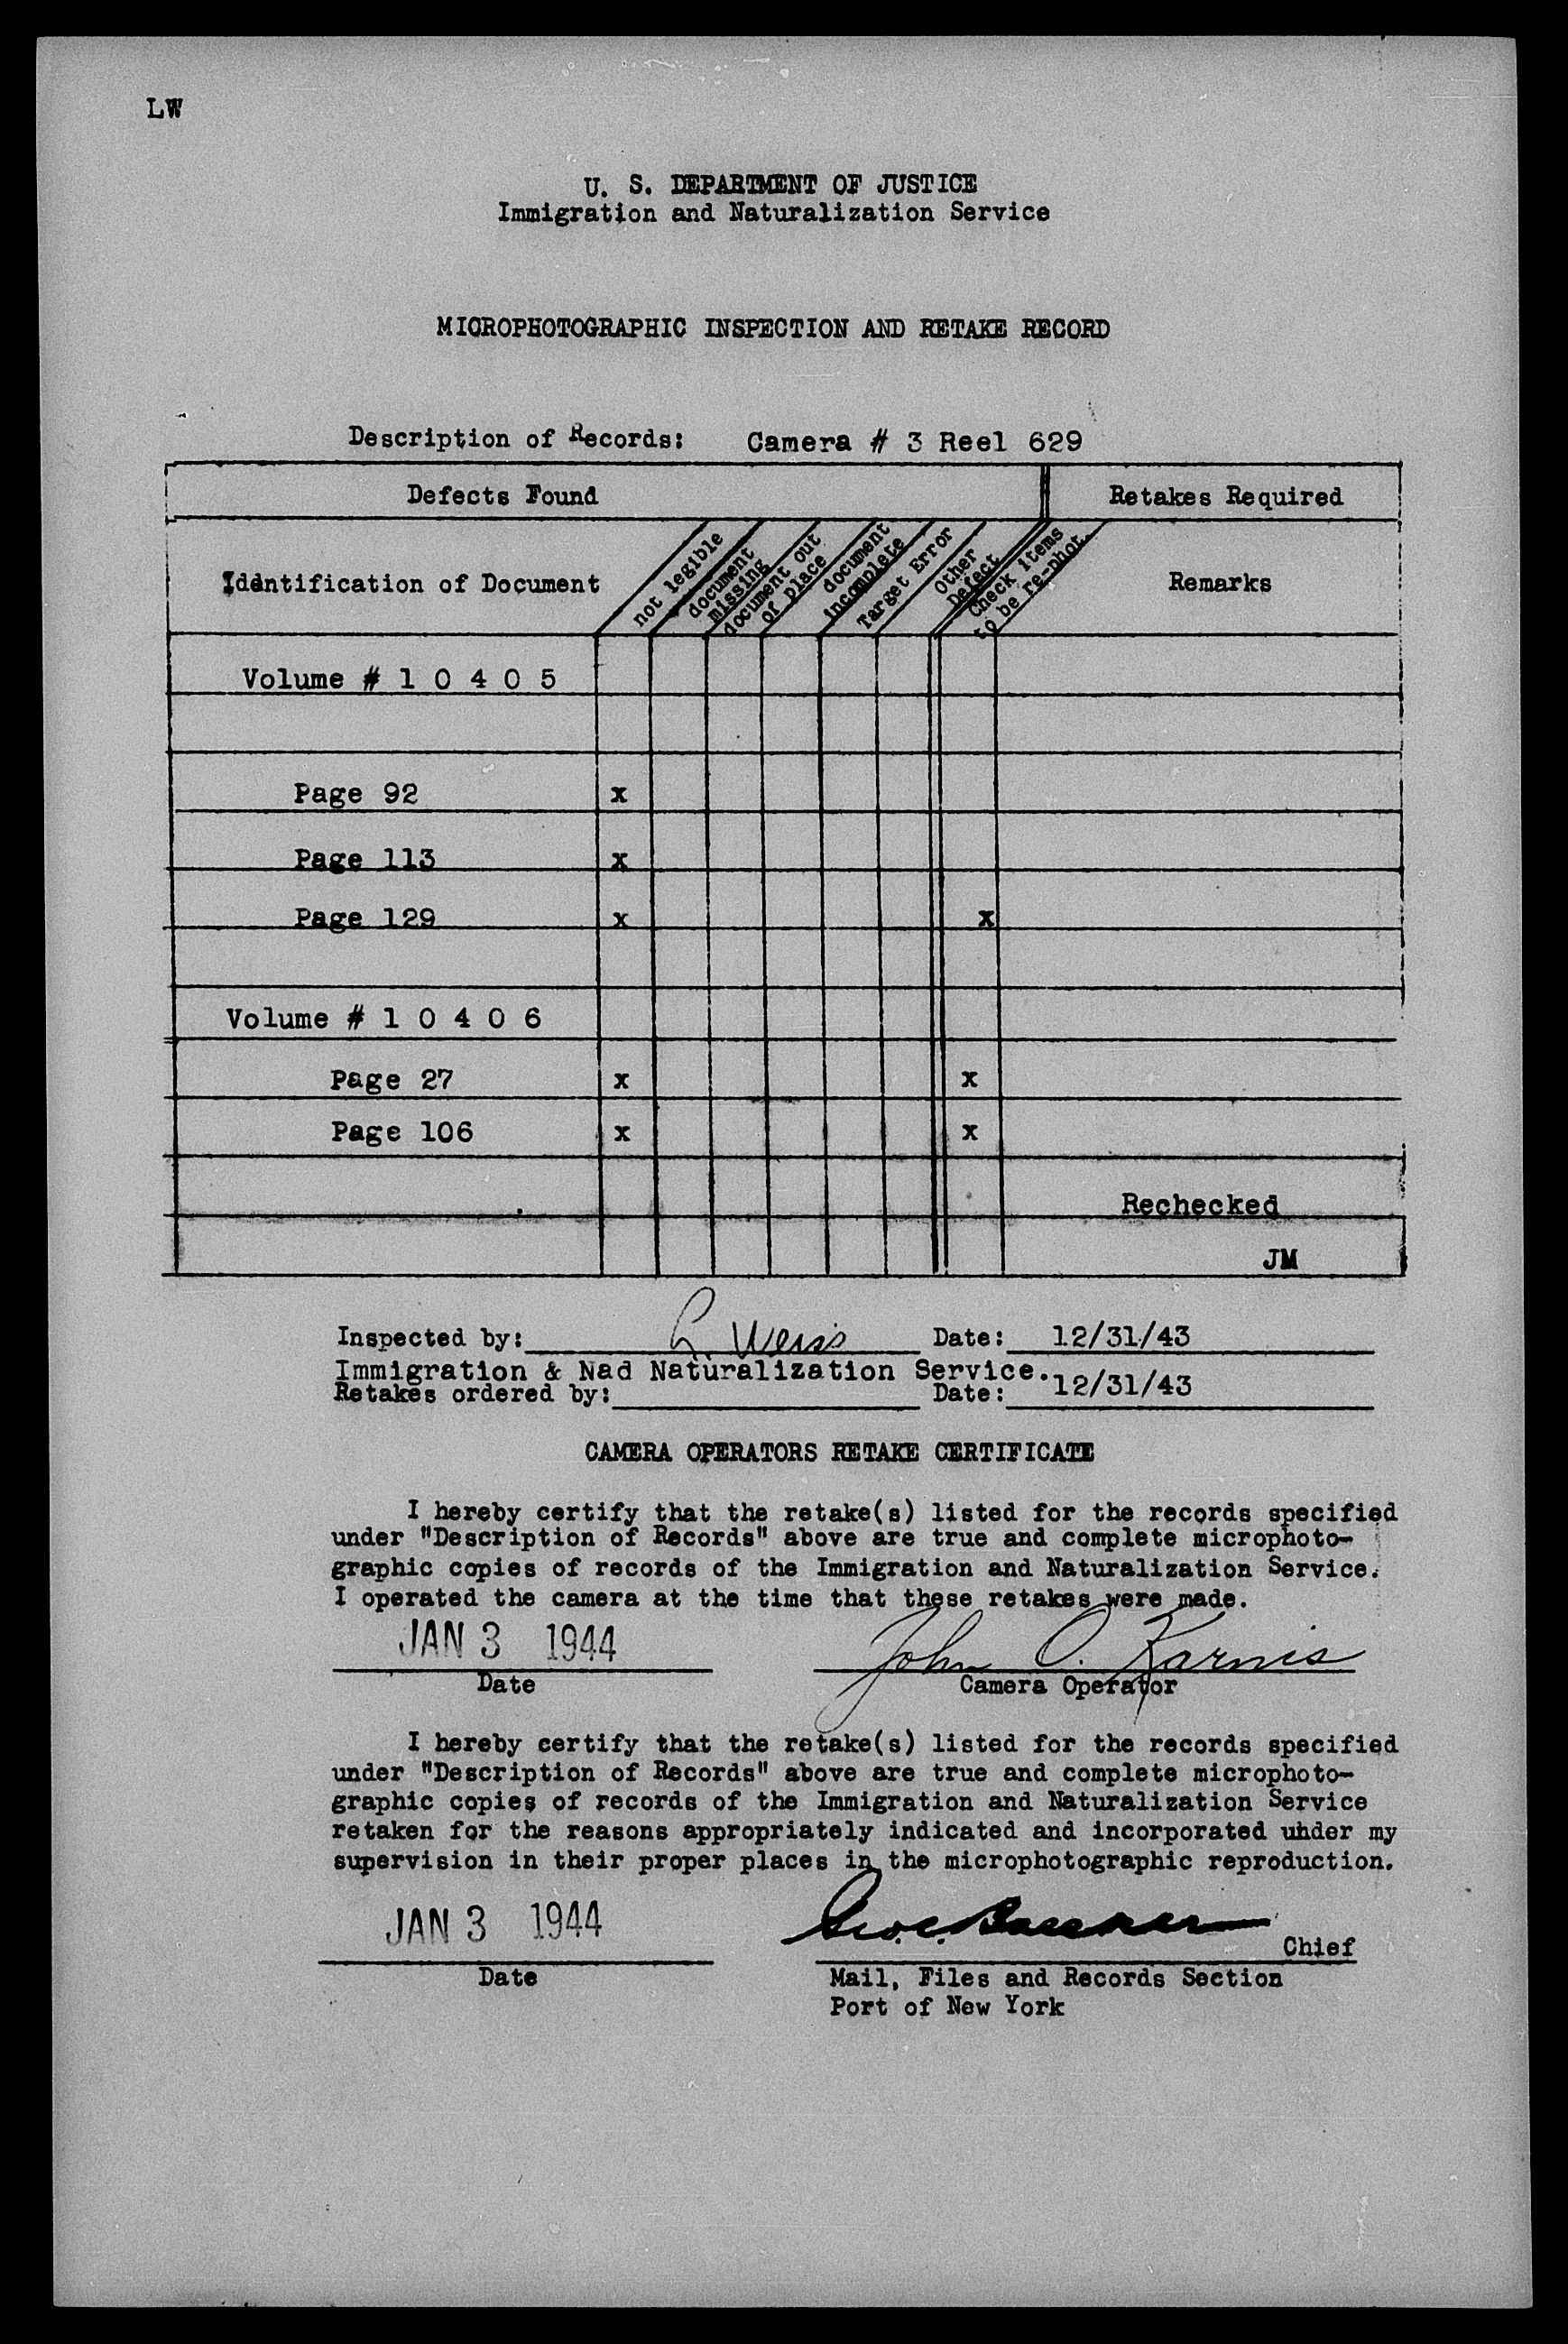 LW
U. S. DEPARTMENT OF JUSTICE
Immigration and Naturalization Service
MICROPHOTOGRAPHIC INSPECTION AND RETAKE RECORD
Description of Records: Camera # 3 Reel 629
Defects Found Retakes Required
Identification of Document
not legible
document missing
document out of place
document incomplete
Target Error
Other Defect
Check items to be re-phot.
Remarks
Volume # 1 0 4 0 5
Page 92 x
Page 113 x
Page 129 x x
Volume # 1 0 4 0 6
Page 27 x x
Page 106 x x
Rechecked
JM
Inspected by: L. Weiss Date: 12/31/43
Immigration & Nad Naturalization Service.
Retakes ordered by: Date: 12/31/43
CAMERA OPERATORS RETAKE CERTIFICATE
I hereby certify that the retake(s) listed for the records specified
under "Description of Records" above are true and complete microphoto-
graphic copies of records of the Immigration and Naturalization Service.
I operated the camera at the time that these retakes were made.
JAN 3 1944 John O. Karnis
Date Camera Operator
I hereby certify that the retake(s) listed for the records specified
under "Description of Records" above are true and complete microphoto-
graphic copies of records of the Immigration and Naturalization Service
retaken for the reasons appropriately indicated and incorporated under my
supervision in their proper places in the microphotographic reproduction.
JAN 3 1944
Chief
Date Mail, Files and Records Section
Port of New York